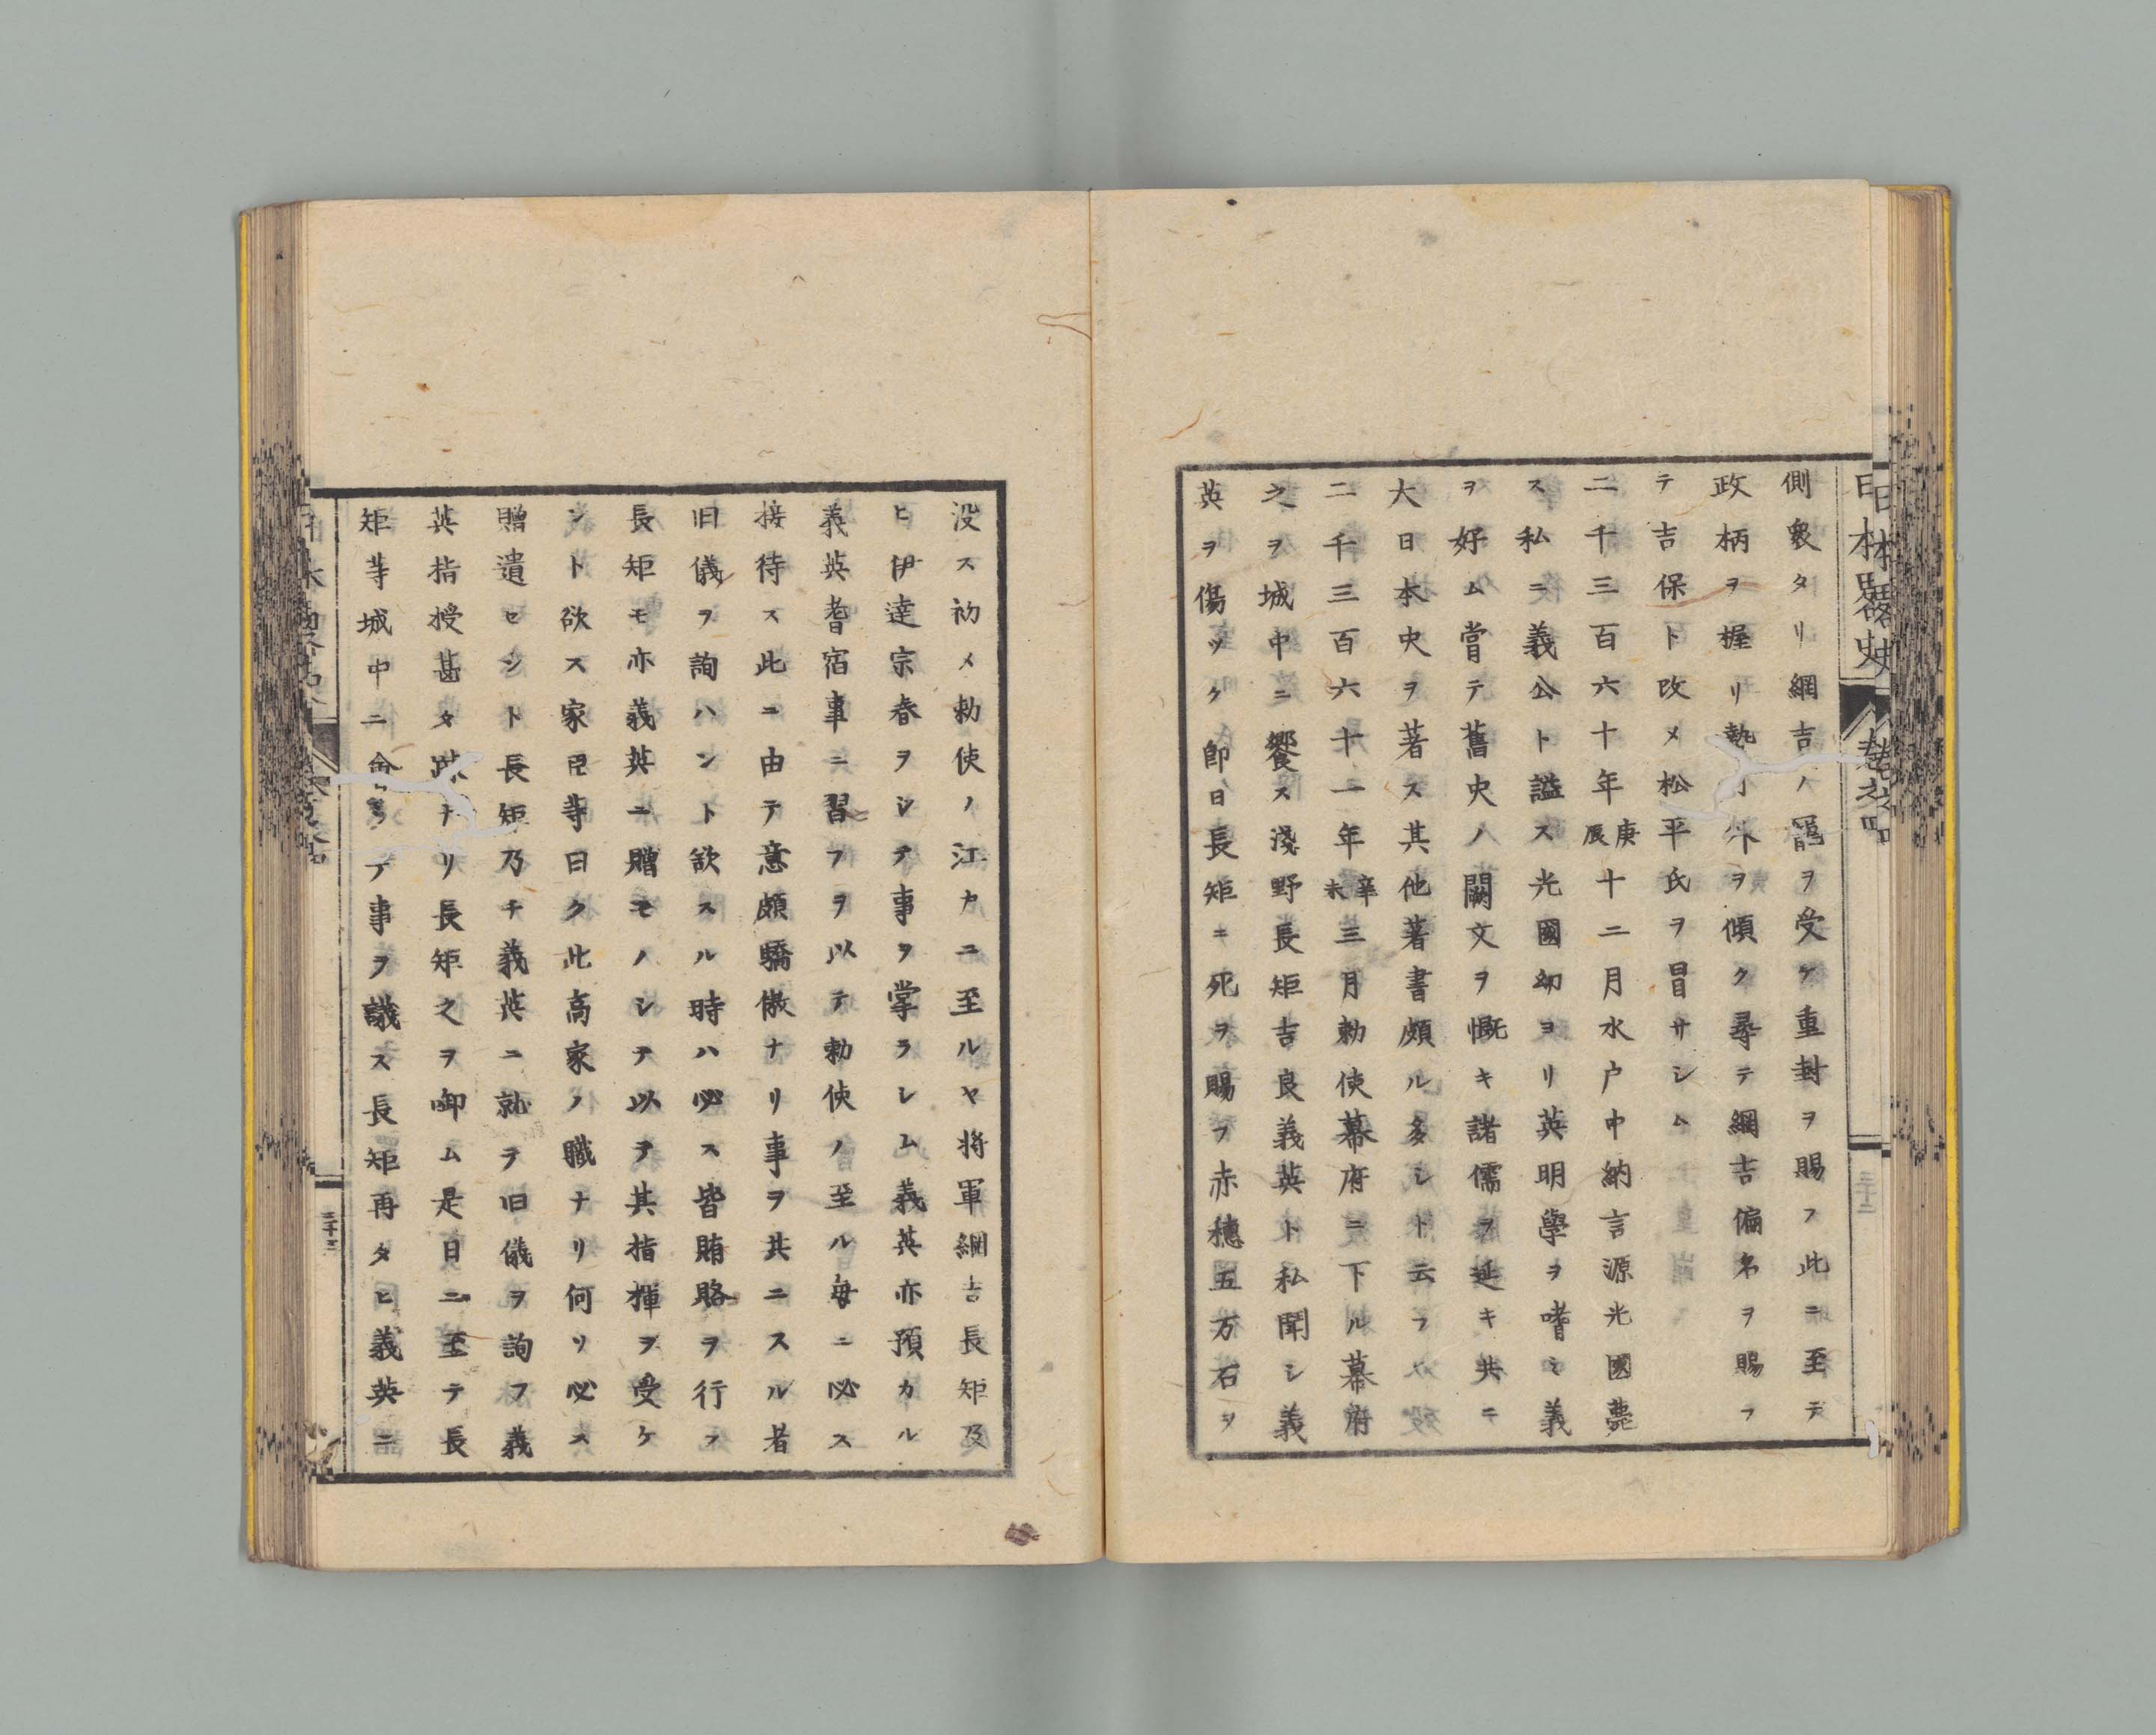 日本畧史 巻之四
側衆タリ綱吉ノ寵ヲ受ケ重封ヲ賜フ此ニ至テ
政柄ヲ握リ勢中外ヲ傾ク尋テ綱吉偏名ヲ賜フ
テ吉保ト改メ松平氏ヲ冒サシム
二千三百六十年庚辰十二月水戸中納言源光國薨
ス私ニ義公ト諡ス光國幼ヨリ英明學ヲ嗜ミ義
ヲ好ム嘗テ舊史ノ闕文ヲ慨キ諸儒ヲ延キ共ニ
大日本史ヲ著ス其他著書頗ル多シト云フ
二千三百六十一年辛未三月勅使幕府ニ下ル幕府
之ヲ城中ニ饗ス淺野長矩吉良義英ト私鬪シ義
英ヲ傷ツク即日長矩ニ死ヲ賜フ赤穗五万石ヲ
没ス初メ勅使ノ江戸ニ至ルヤ将軍綱吉長矩及
ヒ伊達宗春ヲシテ事ヲ掌ラシム義英亦預カル
義英耆宿事ニ習フヲ以テ勅使ノ至ル毎ニ必ス
接待ス此ニ由テ意頗驕傲ナリ事ヲ共ニスル者
旧儀ヲ詢ハント欲スル時ハ必ス皆賄賂ヲ行フ
長矩モ亦義英ニ贈モノシテ以テ其指揮ヲ受ケ
ント欲ス家臣等曰ク此高家ノ職ナリ何ソ必ス
贈遺センヤト長矩乃チ義英ニ就テ旧儀ヲ詢フ義
英指授甚タ疎ナリ長矩之ヲ啣ム是日ニ至テ長
矩等城中ニ會シテ事ヲ議ス長矩再タヒ義英ニ
三十三